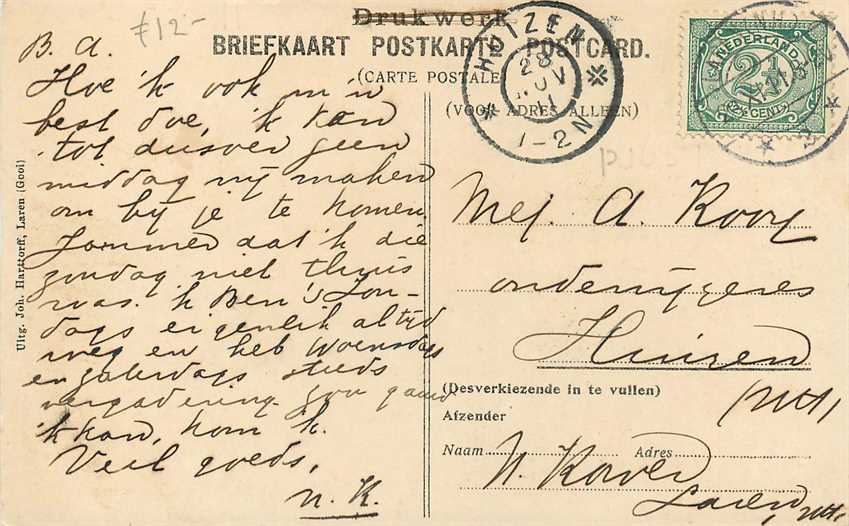 f 12-
Drukwerk
BRIEFKAART POSTKARTE POSTCARD.
(CARTE POSTALE)
(VOOR ADRES ALLEEN)
HUIZEN
28 NOV 11
1-2N
NEDERLAND
2½
(2½ CENT)
B. A.
Hoe 'k ook m'n
best doe, 'k kan
tot dusver geen
middag vrij maken
om bij je te komen.
Jammer dat 'k die
zondag niet thuis
was. 'k Ben 's Zon-
dags eigenlik altijd
weg en heb Woensdags
en Zaterdags steeds
vergadering. Zoo gauw
'k kan, kom 'k.
Veel goeds,
N. K.
Uitg. Joh. Harttorff, Laren (Gooi)
Mej. A. Kooy
onderwijzeres
Huizen
(NH)
(Desverkiezende in te vullen)
Afzender
Naam N. Kover Adres
Laren NH.